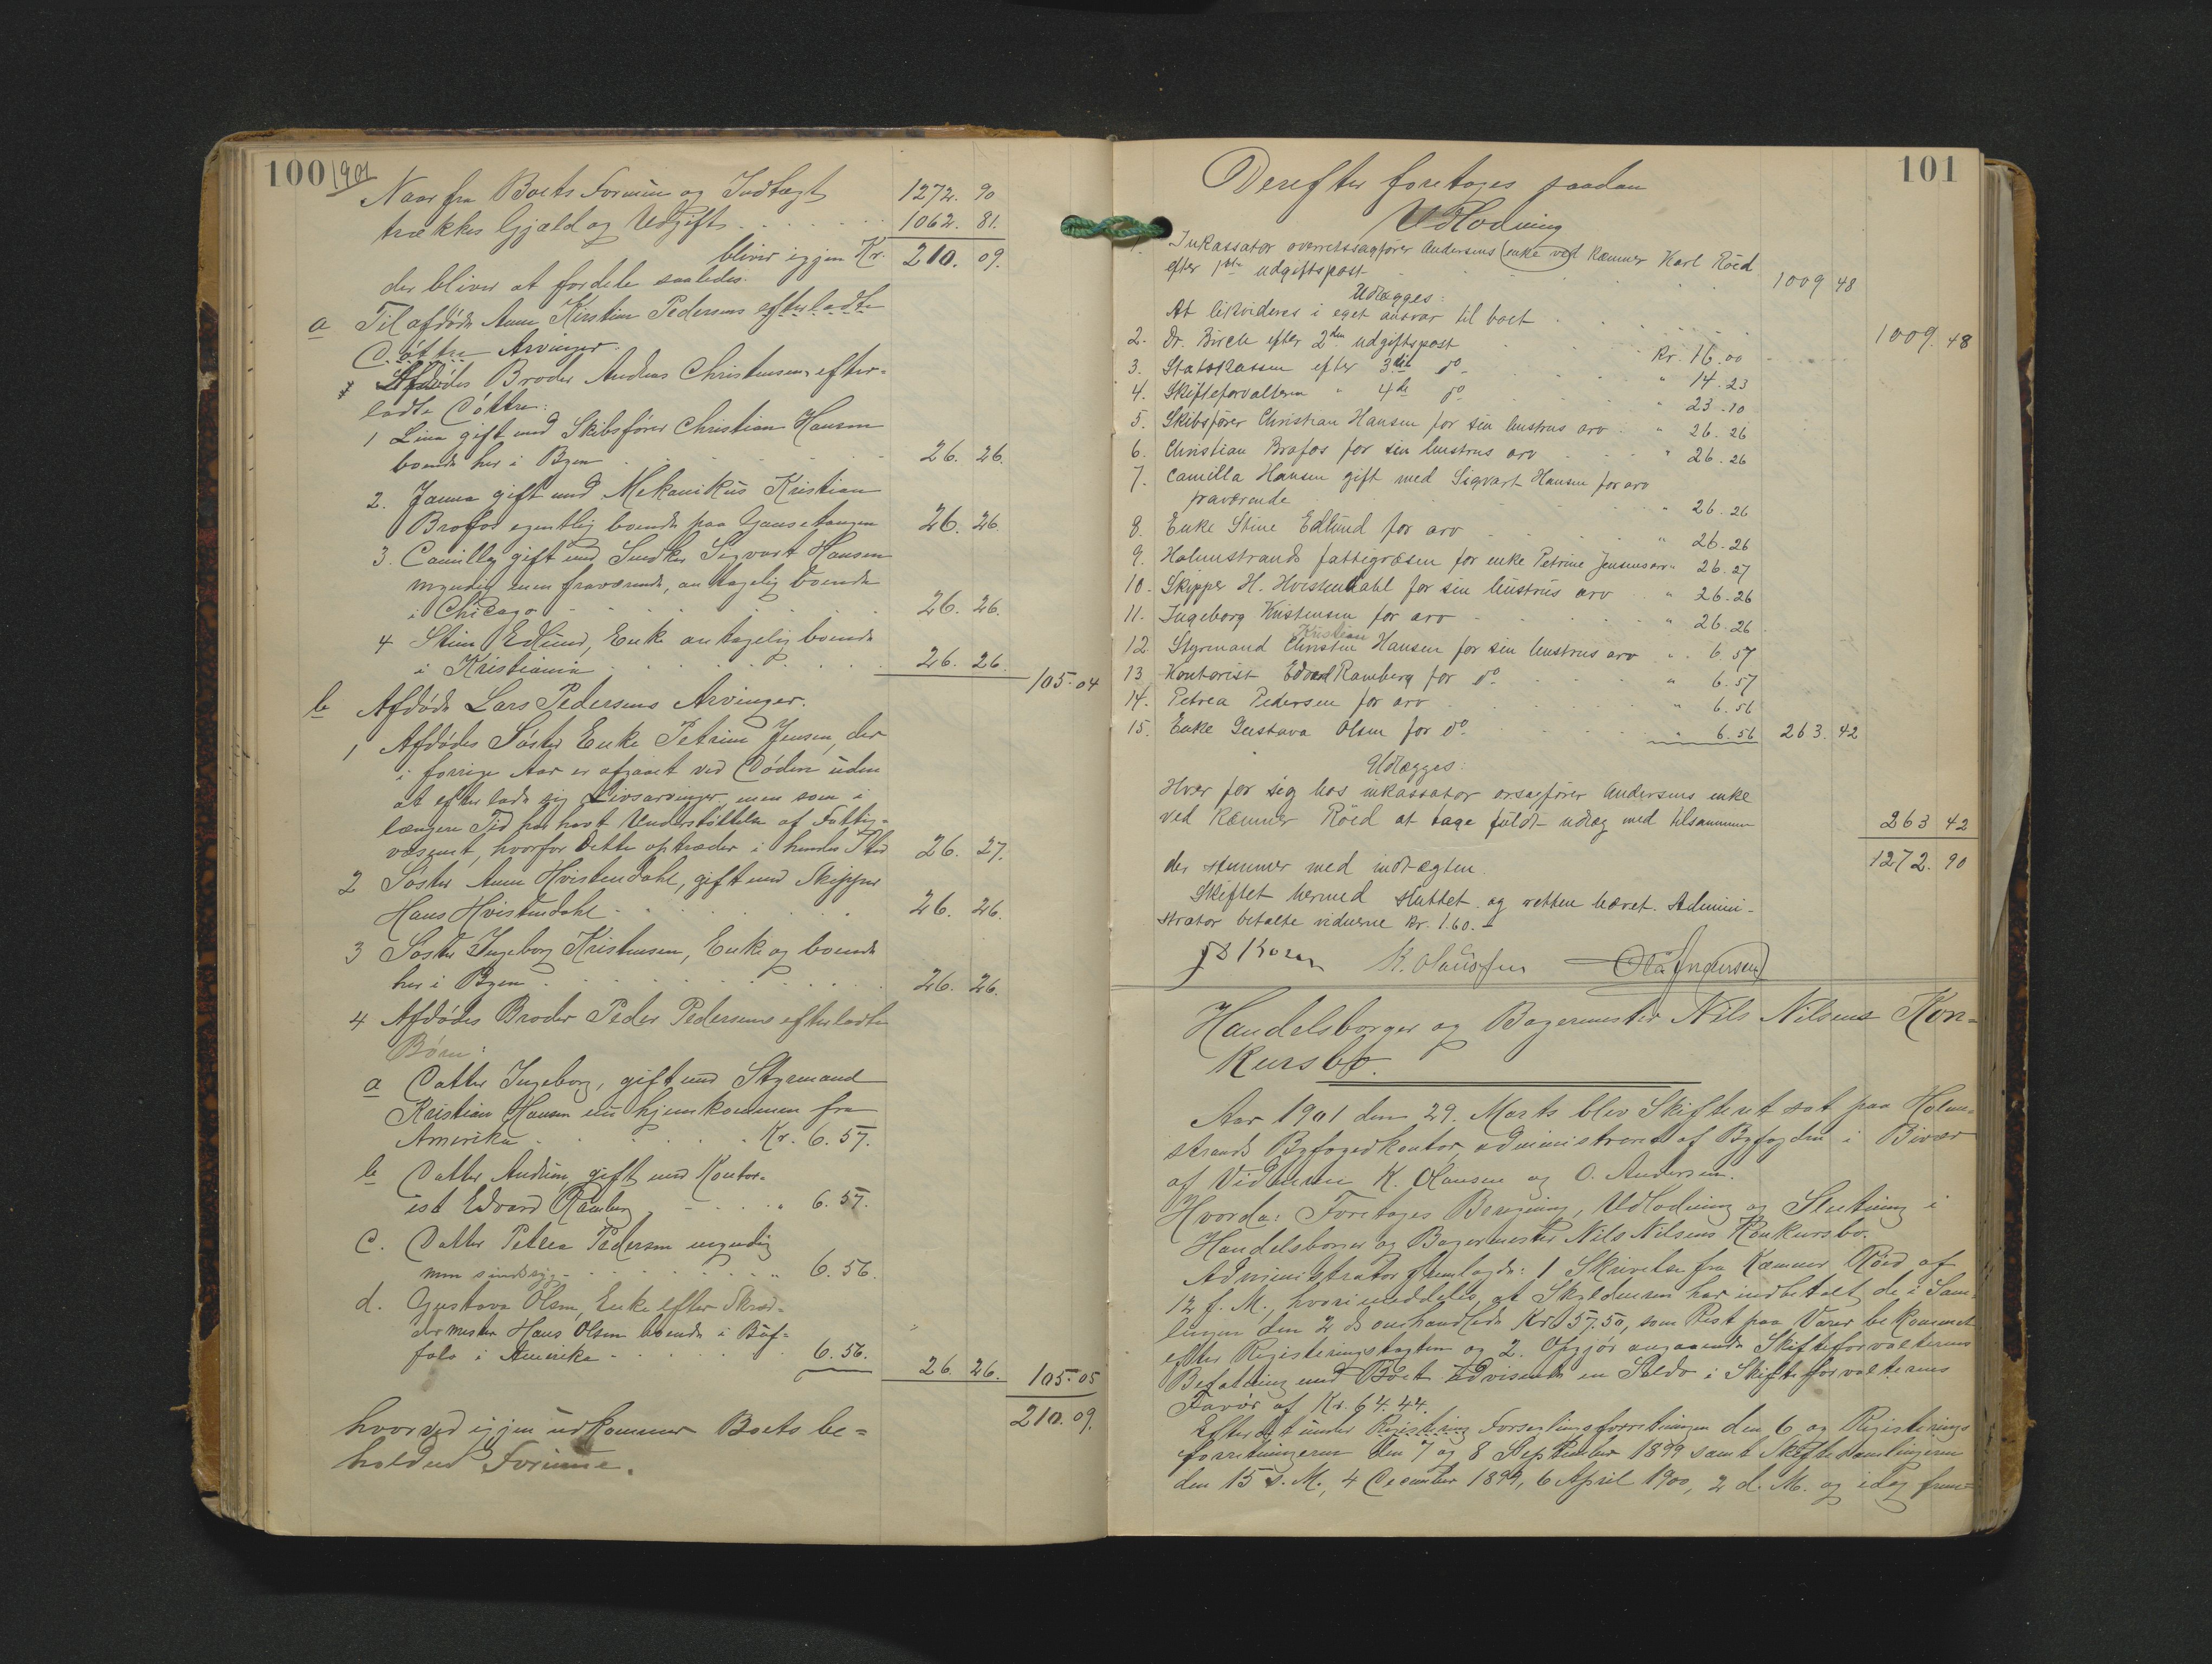 100
1901
Naar fra Boets Formue og Indtægt 1272. 90
trækkes Gjæld og Udgift 1062. 81.
bliver igjen Kr. 210. 09.
der bliver at fordele saaledes.
a Til afdøde Anne Kirstine Pedersens efterladte
Døttre Arvinger.
Afdødes Broder Andreas Christensens efter-
ladte Døttre:
1 Lina gift med Skibsfører Christian Hansen
boende her i Byen 26. 26.
2. Janna gift med Mekanikus Kristian
Brofos egentlig boende paa Gausetangen 26. 26
3. Camilla gift med Snedker Sigvart Hansen
myndig men fraværende, antagelig boende
i Chicago 26. 26.
4 Stine Edlund, Enke antagelig boende
i Kristiania 26. 26.
105. 04
b Afdøde Lars Pedersens Arvinger.
1 Afdødes Søster Enke Petrine Jensen, der
i forrige Aar er afgaaet ved Døden uden
at efterlade sig Livsarvinger, men som i
længere Tid har havt Understøttelse af Fattig-
væsenet, hvorfor dette optræder i hendes Sted 26. 27.
2 Søster Anne Hvistendahl, gift med Skipper
Hans Hvistendahl 26. 26.
3 Søster Ingeborg Kristensen, Enke og boende
her i Byen 26. 26.
4 Afdødes Broder Peder Pedersens efterladte
Børn:
a Datter Ingeborg, gift med Styrmand
Kristian Hansen nu hjemkommen fra
Amerika Kr. 6. 57.
b Datter Andrine, gift med Kontor-
ist Edvard Ramberg " 6. 57.
c. Datter Petrea Pedersen myndig
men sindssyg " 6. 56.
d. Gustava Olsen, Enke efter Skræd-
dermester Hans Olsen boende i Buf-
falo i Amerika 6. 56. 26. 26. 105. 05
210. 09.
hvorved igjen udkommer Boets be-
holdne Formue.
101
Derefter foretoges saadan
Udlodning
1. Inkassator overretssagfører Andersens (enke ved Kæmner Karl Röed
efter 1ste udgiftspost 1009 48
Udlægges:
At likvideres i eget ansvar til boet 1009. 48
2. Dr. Birch efter 2den udgiftspost Kr. 16.00
3. Statskassen efter 3die do " 14. 23
4. Skifteforvalteren " 4de do " 23. 10
5. Skibsfører Christian Hansen for sin hustrus arv " 26. 26
6. Christian Brofos for sin hustrus arv " 26. 26
7. Camilla Hansen gift med Sigvart Hansen for arv
fraværende " 26. 26
8. Enke Stine Edlund for arv " 26. 26
9. Holmestrands fattigvæsen for enke Petrine Jensens arv " 26. 27
10. Skipper H. Hvistendahl for sin hustrus arv " 26. 26
11. Ingeborg Kristensen for arv " 26. 26
Kristian
12 Styrmand Christen Hansen for sin hustrus arv " 6. 57
13 Kontorist Edvard Ramberg for do " 6. 57
14. Petrea Pedersen for arv " 6. 56
15. Enke Gustava Olsen for do " 6. 56 263. 42
Udlægges:
Hver for sig hos inkassator orsagfører Andersens enke
ved Kæmner Röed at tage fuldt udlæg med tilsammen 263 42
1272. 90
der stemmer med indtægten.
Skiftet hermed sluttet og retten hævet. Admini-
strator betalte vidnerne kr. 1.60.
K. Olaussen O. Andersen
Handelsborger og Bagermester Nils Nilsens Kon-
kursbo.
Aar 1901 den 29. Marts blev Skifteret sat paa Holme-
strands Byfogedkontor, administreret af Byfogden i Bivær
af Vidnerne K. Olausen og O. Andersen.
Hvorda: Foretoges Beregning, Udlodning og Slutning i
Handelsborger og Bagermester Nils Nilsens Konkursbo.
Administrator fremlagde: 1 Skrivelse fra Kæmner Röed af
12 f. M., hvori meddeles, at Skyldneren har indbetalt de i Sam-
lingen den 2 ds omhandlede Kr. 157.50, som Rest paa Varer bekommet
efter Registreringstagten og 2. Opgjør angaaende Skifteforvalterens
Befatning med Boet udvisende en Saldo i Skifteforvalterens
Favør af Kr. 64. 44.
Efter det under Registering Forseglingsforretningen den 6 og Registerings
forretningerne den 7 og 8 September 1899 samt Skiftesamlingerne
den 15 s. M., 4 December 1899, 6 April 1900, 2 d. M. og idag frem-